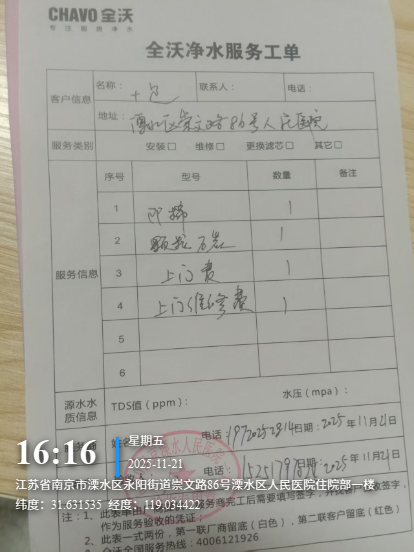 CHAVO全沃
专注厨房净水
全沃净水服务工单
客户信息
名称：
联系人：
电话：
地址：溧水区崇文路86号人民医院
服务类别
安装□ 维修□ 更换滤芯□ 其它□
服务信息
序号 型号 数量 备注
1 1
2 颗粒 1
3 上门费 1
4 上门维修费 1
5
6
源水水质信息
TDS值（ppm）：
水压（mpa）：
电话： 日期：2025年11月21日
2025年11月21日
16:16
星期五
2025-11-21
江苏省南京市溧水区永阳街道崇文路86号溧水区人民医院住院部一楼
纬度：31.631535 经度：119.034422
注：1、此表单由
服务商完工后需要填写
作为服务验收的凭证
2、此表一式两份，第一联厂商留底（白色），第二联客户留底（红色）
全沃全国服务热线：4006121926